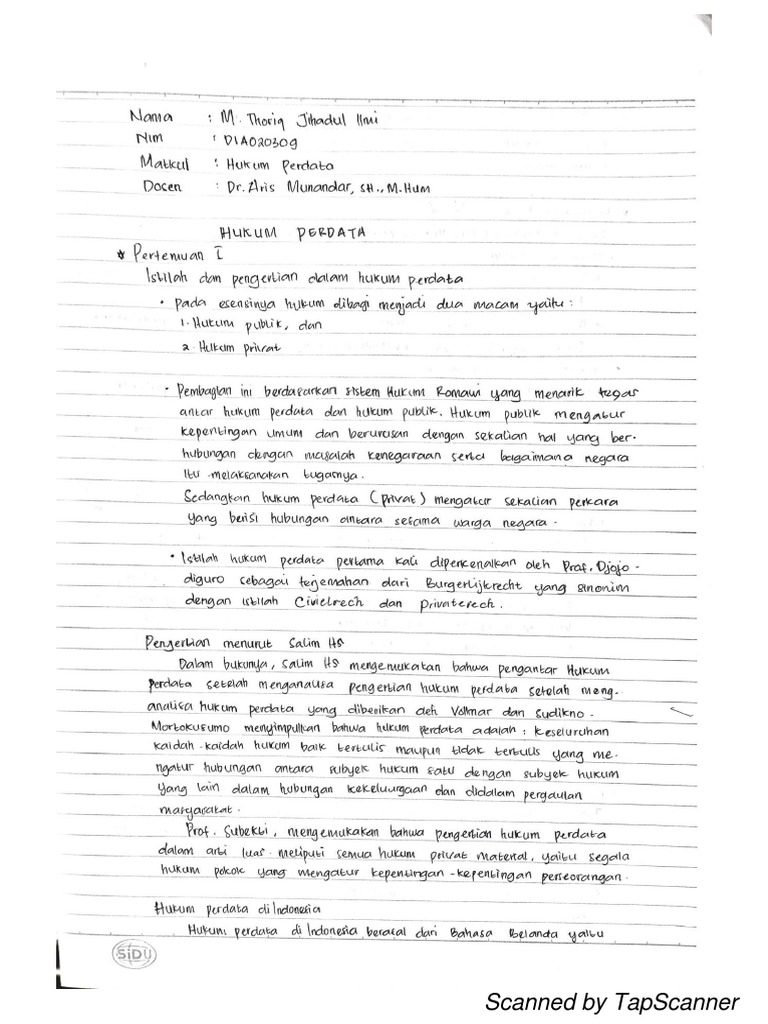 Nama : M. Thoriq Jihadul Ilmi
Nim : D1A020309
Matkul : Hukum Perdata
Docen : Dr. Aris Munandar, SH., M.Hum
HUKUM PERDATA
* Pertemuan I
Istilah dan pengertian dalam hukum perdata
• pada esensinya hukum dibagi menjadi dua macam yaitu :
1. Hukum publik, dan
2. Hukum privat
• Pembagian ini berdasarkan sistem Hukum Romawi yang menarik tegas
antar hukum perdata dan hukum publik. Hukum publik mengatur
kepentingan umum dan berurusan dengan sekalian hal yang ber-
hubungan dengan masalah kenegaraan serta bagaimana negara
itu melaksanakan tugasnya.
Sedangkan hukum perdata (privat) mengatur sekalian perkara
yang berisi hubungan antara sesama warga negara.
• Istilah hukum perdata pertama kali diperkenalkan oleh Prof. Djojo-
diguro sebagai terjemahan dari Burgerlijkrecht yang sinonim
dengan istilah Civielrech dan Privaterech.
Pengertian menurut Salim HS
Dalam bukunya, Salim HS mengemukakan bahwa pengantar Hukum
Perdata setelah menganalisa pengertian hukum perdata setelah meng-
analisa hukum perdata yang diberikan oleh Vollmar dan Sudikno-
Mortokusumo menyimpulkan bahwa hukum perdata adalah : keseluruhan
kaidah-kaidah hukum baik tertulis maupun tidak tertulis yang me-
ngatur hubungan antara subyek hukum satu dengan subyek hukum
yang lain dalam hubungan kekeluargaan dan didalam pergaulan
masyarakat.
Prof. Subekti, mengemukakan bahwa pengertian hukum perdata
dalam arti luas meliputi semua hukum privat material, yaitu segala
hukum pokok yang mengatur kepentingan-kepentingan perseorangan.
Hukum perdata di Indonesia
Hukum perdata di Indonesia berasal dari Bahasa Belanda yaitu
SiDU
Scanned by TapScanner